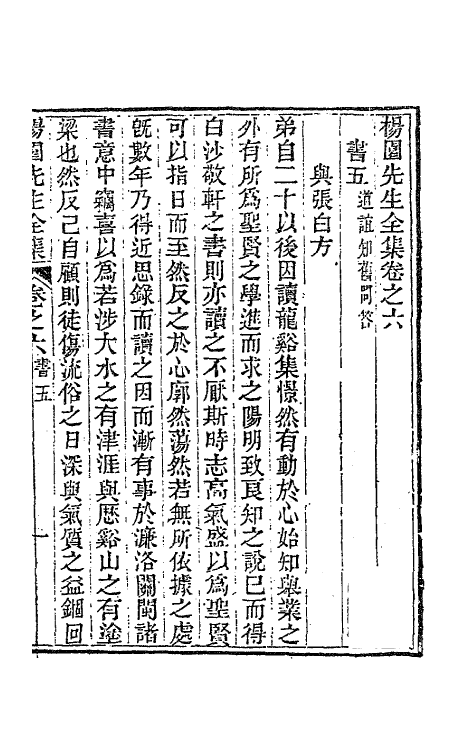 楊園先生全集卷之六
書五 道誼知舊問答
與張白方
弟自二十以後因讀龍谿集憬然有動於心始知舉業之
外有所爲聖賢之學進而求之陽明致良知之說已而得
白沙敬軒之書則亦讀之不厭斯時志高氣盛以爲聖賢
可以指日而至然反之於心廓然蕩然若無所依據之處
旣數年乃得近思錄而讀之因而漸有事於濂洛關閩諸
書意中竊喜以爲若涉大水之有津涯與歷谿山之有塗
梁也然反己自顧則徒傷流俗之日深與氣質之益錮回
楊園先生全集 卷之六 書五 一